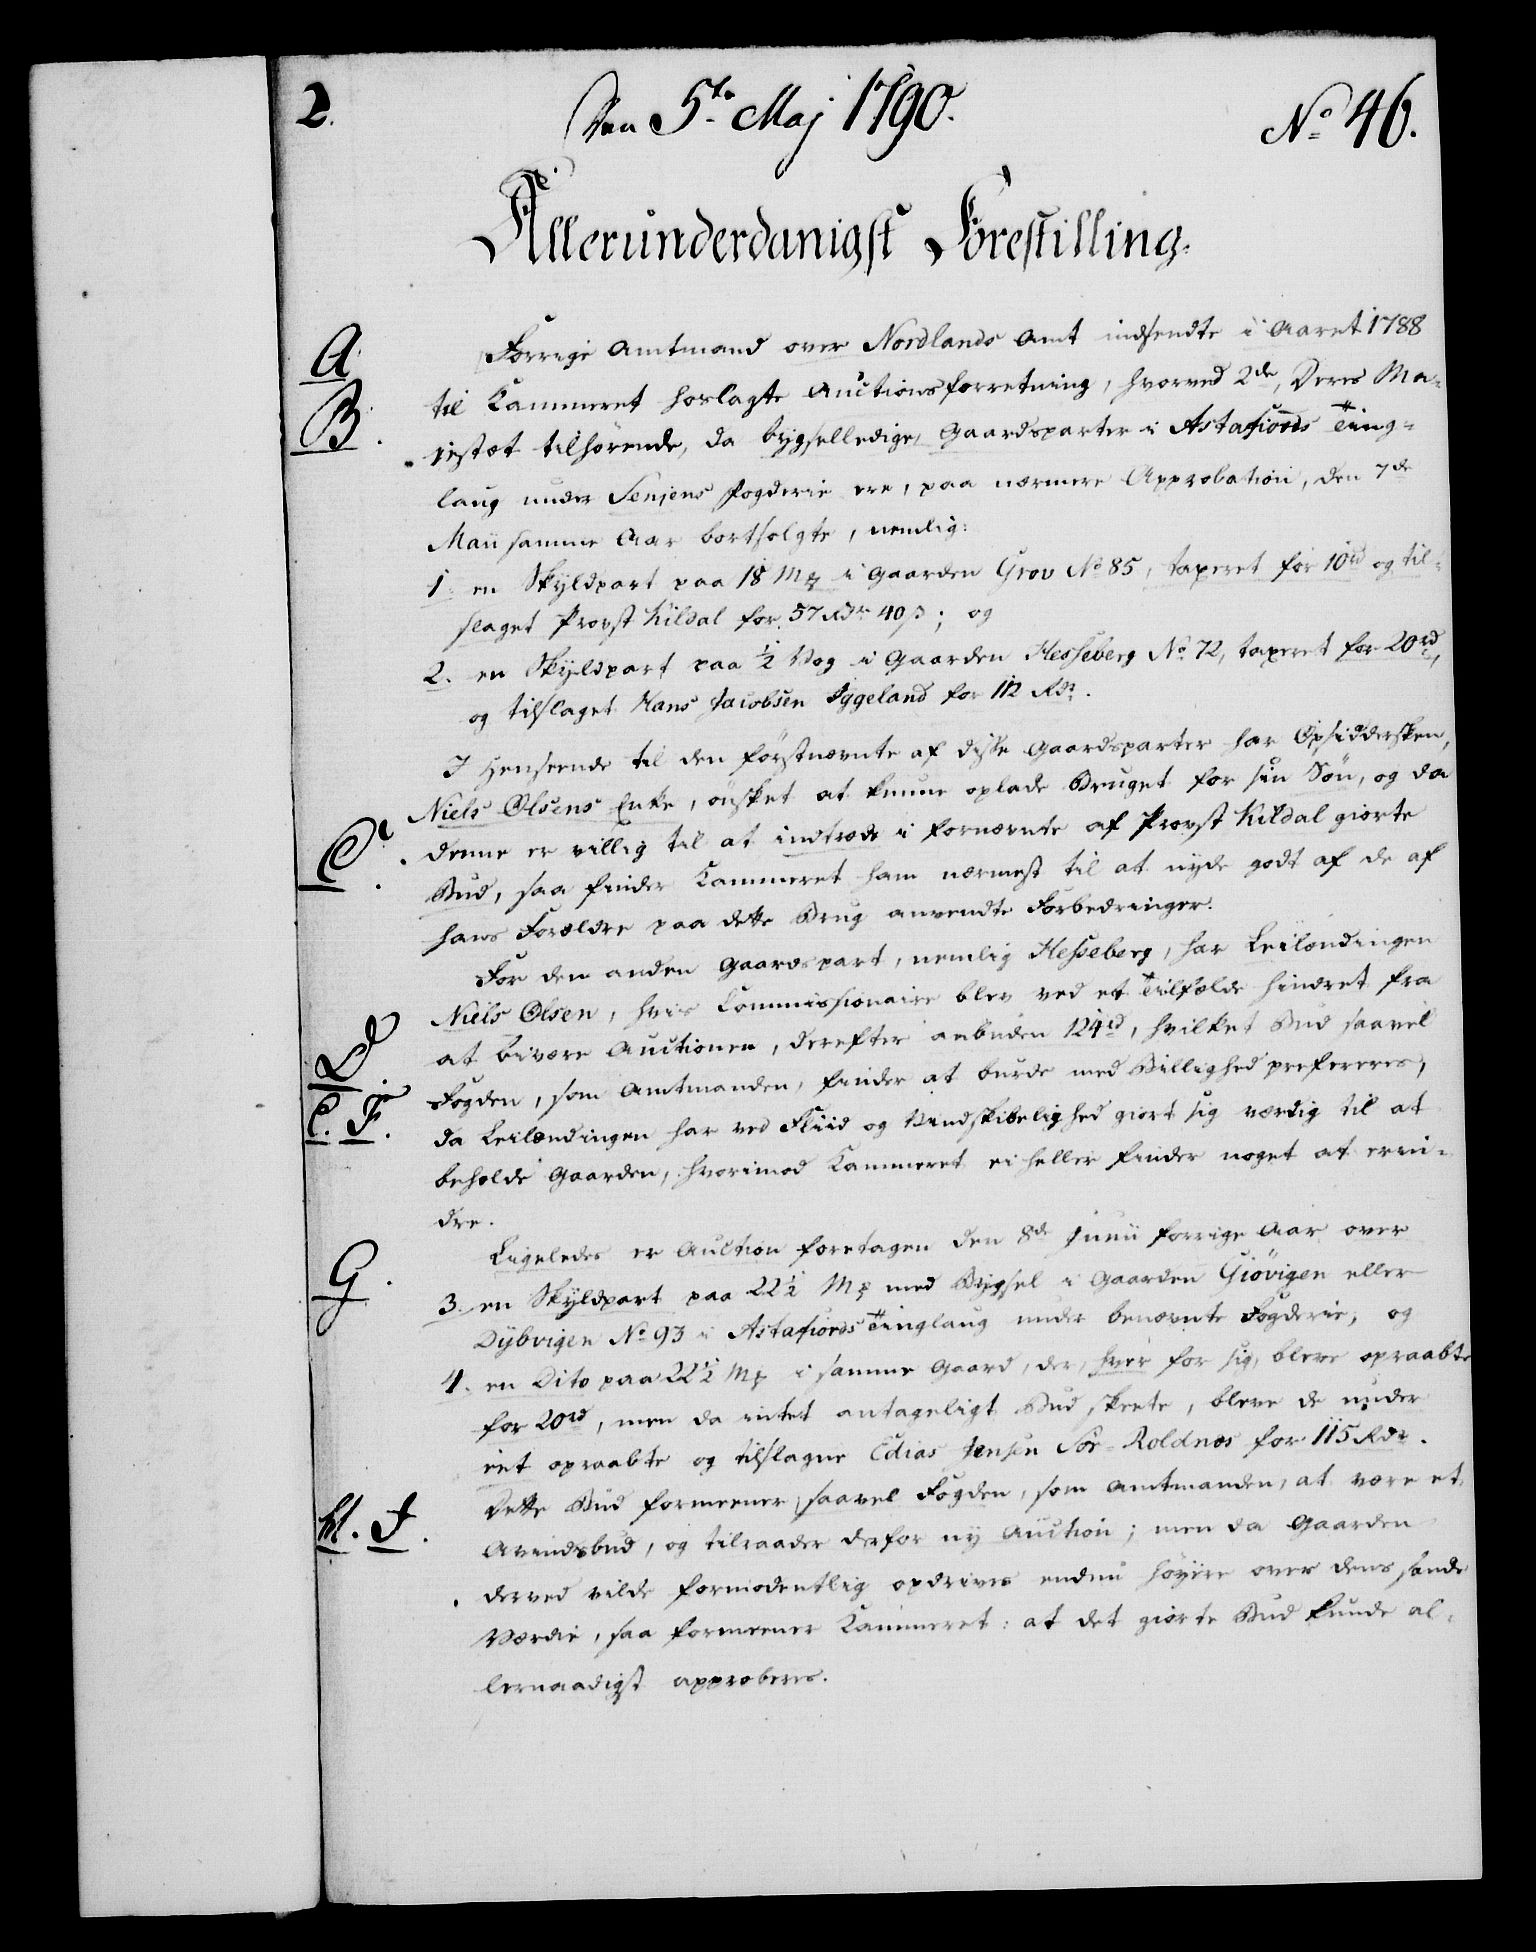 2.
Den 5te Maj 1790.
No 46.
Allerunderdanigst Forestilling.
A
B.
Forrige Amtmand over Nordlands Amt indsendte i Aaret 1788
til Kammeret hoslagte Auctionsforretning, hvorved 2de, Deres Ma-
jestæt tilhørende, da bygselledige, Gaardsparter i Astafiords Ting-
laug under Senjens Fogderie ere, paa nærmere Approbation, den 7de
Maii samme Aar bortsolgte, nemlig:
1. en Skyldpart paa 18 Mk i Gaarden Grov No 85, taxeret for 10rd og til-
slaget Provst Kildal for 57 Rdr 40 ß; og
2. en Skyldpart paa ½ Vog i Gaarden Hesseberg No 72, taxeret for 20rd,
og tilslaget Hans Jacobsen Iggeland for 112 Rdr.
I Henseende til den førstnævnte af disse Gaardsparter har Opsiddersken,
Niels Olsens Enke, ønsket at kunne oplade Bruget for sin Søn, og da
C.
denne er villig til at indtræde i fornævnte af Provst Kildal giorte
Bud, saa finder Kammeret ham nærmest til at nyde godt af de af
hans Forældre paa dette Brug anvendte Forbedringer.
For den anden Gaardspart, nemlig Hesseberg, har Leilændingen
Niels Olsen, hvis Commissionaire blev ved et Tilfælde hindret fra
D
at bivære Auctionen, derefter anbuden 124rd, hvilket Bud saavel
E. F.
Fogden, som Amtmanden, finder at burde med Billighed prefereres,
da Leilændingen har ved Fliid og Vindskibelighed giort sig værdig til at
beholde Gaarden, hvorimod Kammeret ei heller finder noget at erin-
dre.
G.
Ligeledes er Auction foretagen den 8de Junii forrige Aar over
3. en Skyldpart paa 22½ Mk med Bygsel i Gaarden Giövigen eller
Dybvigen No 93 i Astafiords Tinglaug under benævnte Fogderie, og
4. en Dito paa 22½ Mk i samme Gaard, der, hver for sig, bleve opraabte
for 20rd, men da intet antageligt Bud skeete, bleve de under
eet opraabte og tilslagne Edias Jensen Sör-Roldnæs for 115 Rdr.
H. I.
Dette Bud formeener, saavel Fogden, som Amtmanden, at være et
Avindsbud, og tilraader derfor ny Auction; men da Gaarden
derved vilde formodentlig opdrives endnu høyere over dens sande
Værdie, saa formeener Kammeret: at det giorte Bud kunde al-
lernaadigst approberes.